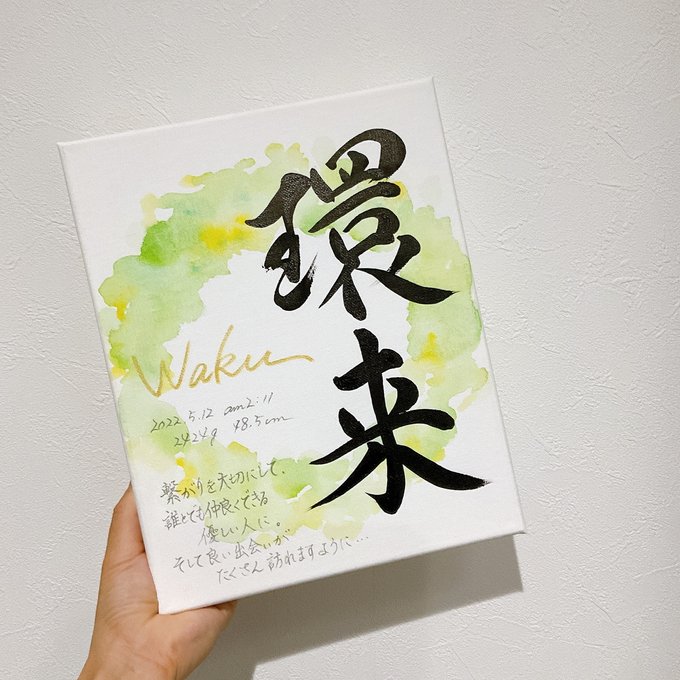 環来
Waku
2022.5.12 am2:11
2424g 48.5cm
繋がりを大切にして、
誰とでも仲良くできる
優しい人に。
そして良い出会いが
たくさん訪れますように…